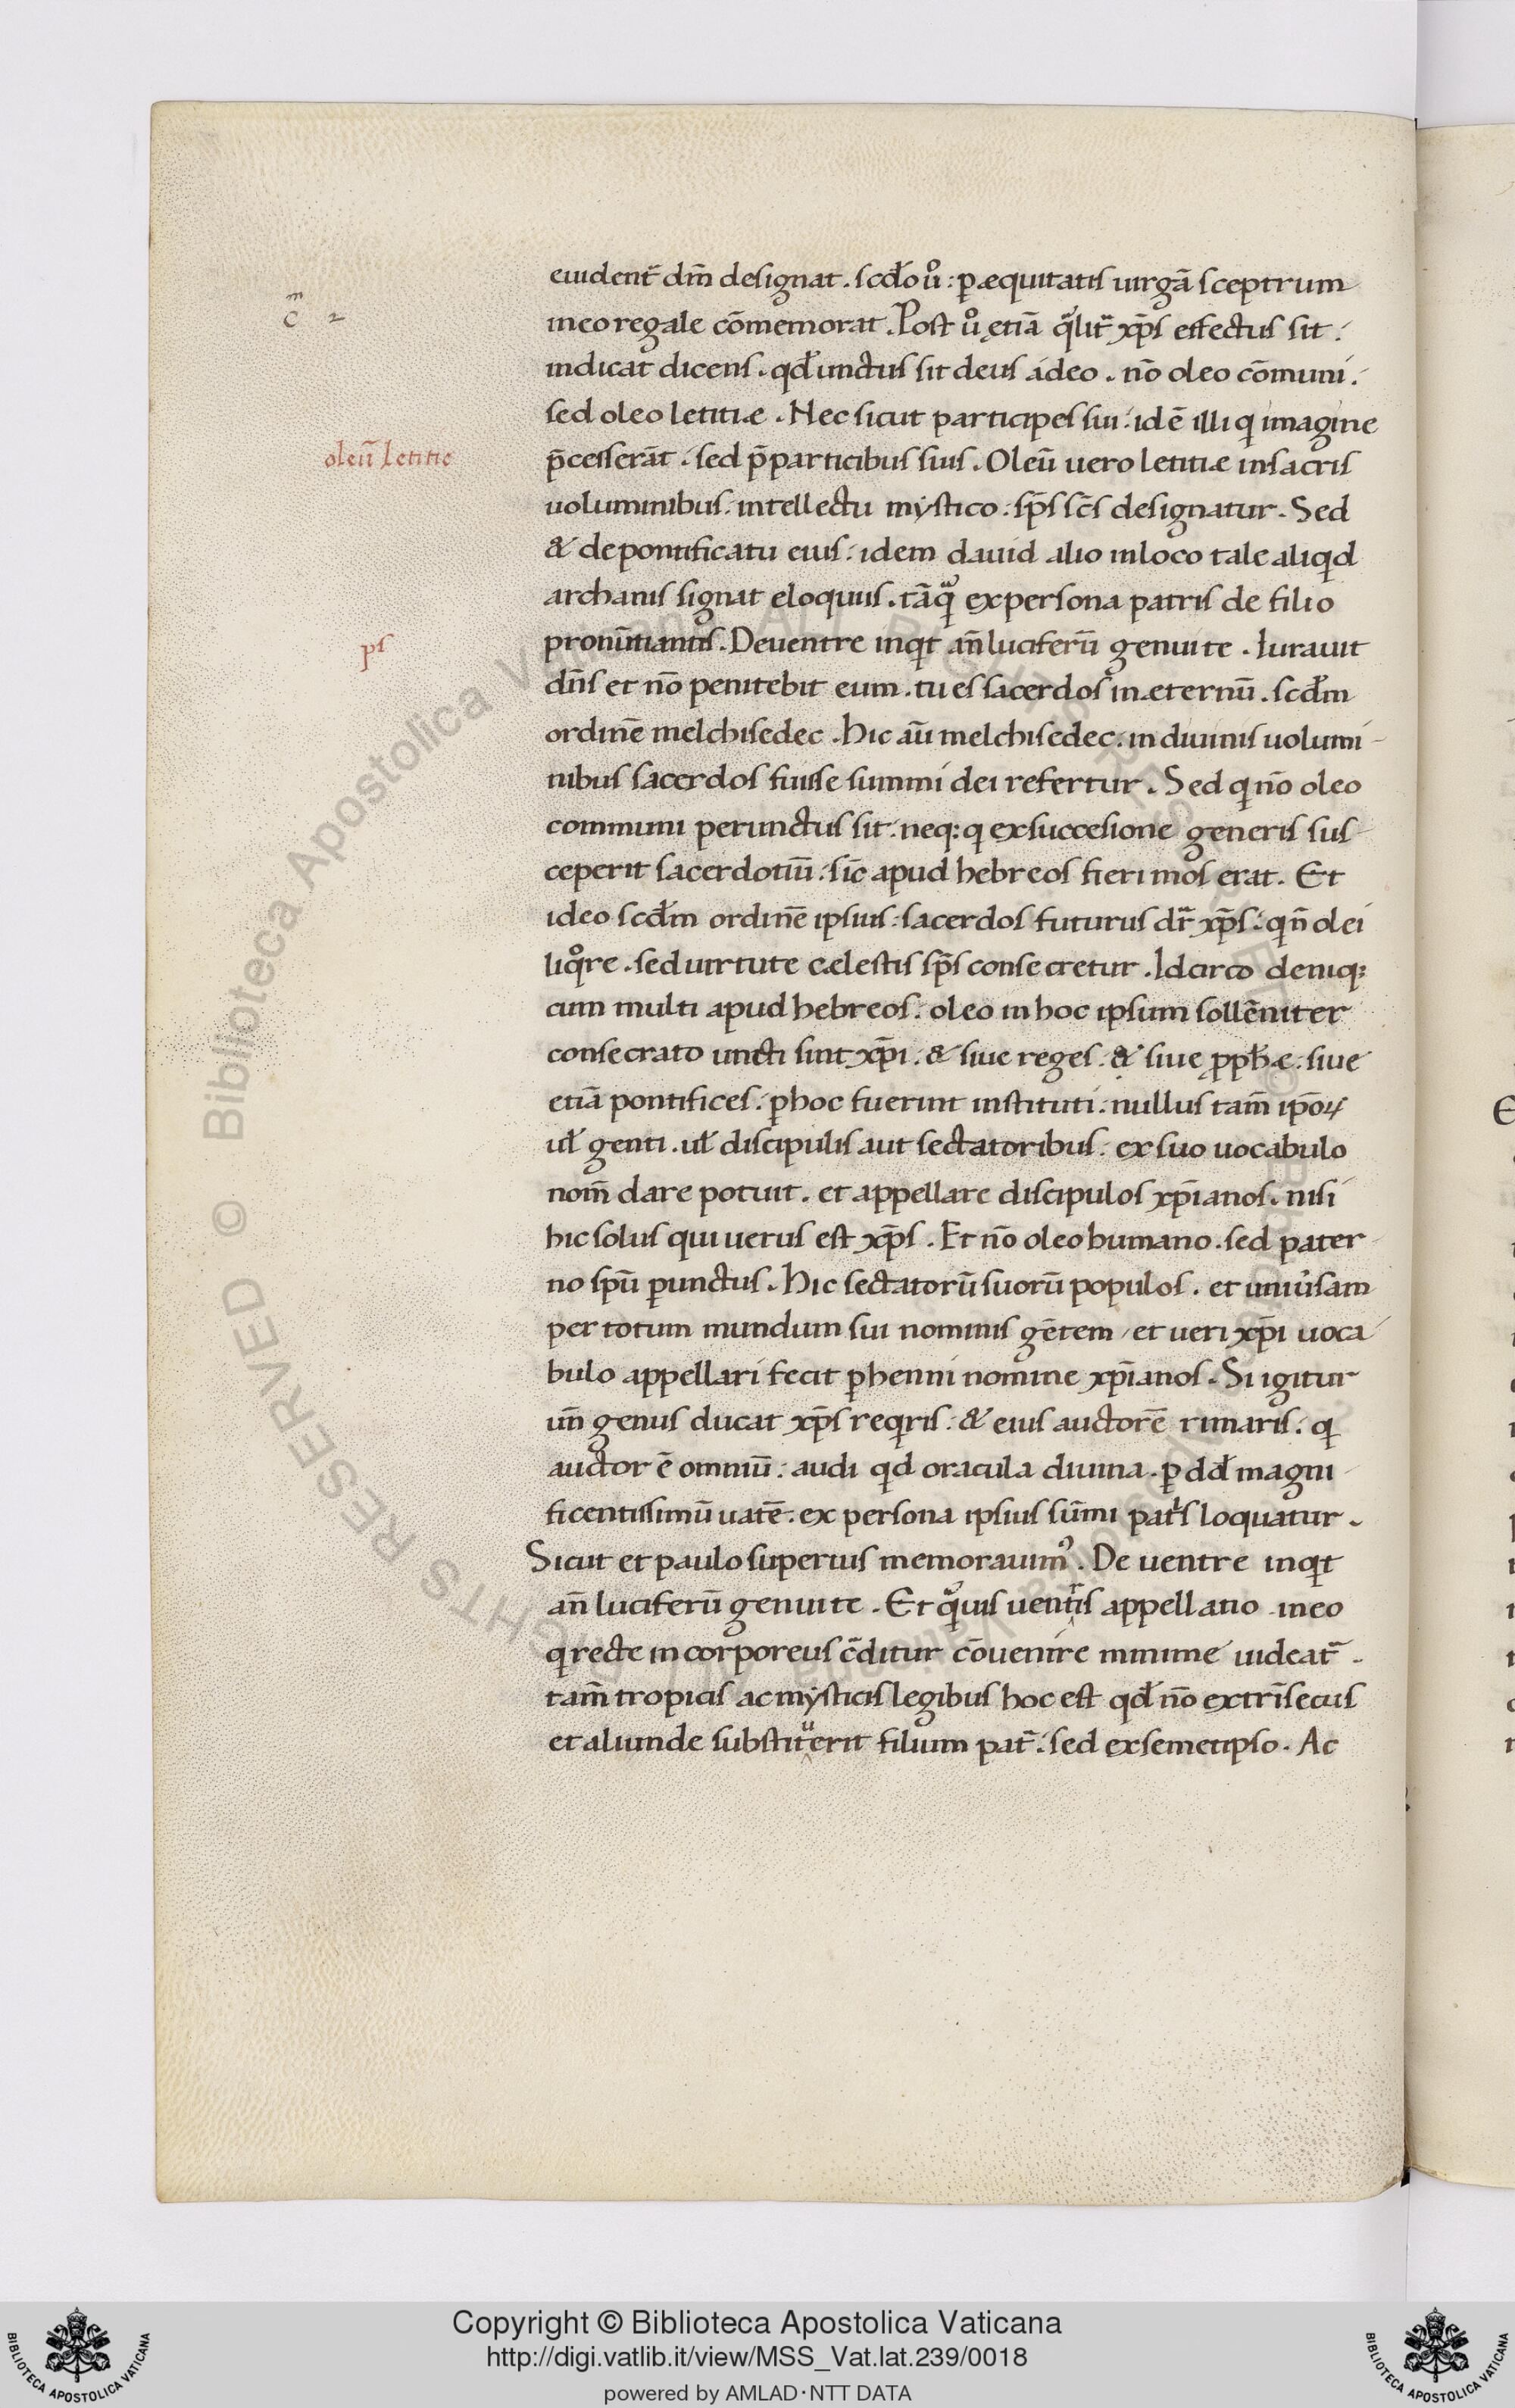 euident̄ dm̄ designat. scd̄o uͦ: ꝑ æquitatis uirgā sceptrum
in eo regale cōmemorat. Post uͦ etiā qͣlit̄ xp̄s effectus sit:
indicat dicens. qd̄ unctus sit deus a deo. nō oleo cōmuni.
sed oleo letitiæ. Nec sicut participes sui: idē illi qͥ imagine
oleū letitie
p̄cesserāt. sed p̄ participibus suis. Oleū uero letitiæ in sacris
uoluminibus: intellectu mystico: sp̄s sc̄s designatur. Sed
& de pontificatu eius: idem dauid alio in loco tale aliqͥd
archanis signat eloquiis. tāqͣ ex persona patris de filio
ps
pronūtiantis. De uentre inqͥt an̄ luciferū genui te. Iurauit
dn̄s et nō penitebit eum. tu es sacerdos in æternū. scd̄m
ordinē melchisedec. Hic aū melchisedec. in diuinis uolumi-
nibus sacerdos fuisse summi dei refertur. Sed qͥ nō oleo
communi perunctus sit: neq: qͥ ex succesione generis sus-
ceperit sacerdotiū: sic̄ apud hebreos fieri mos erat. Et
ideo scd̄m ordinē ipsius: sacerdos futurus dr̄ xp̄s: qͥ n̄ olei
liqͦre. sed uirtute cælestis sp̄s consecretur. Idcirco deniq:
cum multi apud hebreos: oleo in hoc ipsum sollēniter
consecrato uncti sint xp̄i. & siue reges: & siue ꝓph̄æ: siue
etiā pontifices: ꝑ hoc fuerint instituti: nullus tam̄ ip̄oꝝ
ul̄ genti. ul̄ discipulis aut sectatoribus: ex suo uocabulo
nom̄ dare potuit. et appellare discipulos xp̄ianos. nisi
hic solus qui uerus est xp̄s. Et nō oleo humano. sed pater-
no sp̄u ꝑunctus. Hic sectatorū suorū populos. et uniu̓sam
per totum mundum sui nominis gētem, et ueri xp̄i uoca-
bulo appellari fecit ꝑhenni nomine xp̄ianos. Si igitur
un̄ genus ducat xp̄s reqͥris: & eius auctorē rimaris: qͥ
auctor ē omniū: audi qͥd oracula diuina. ꝑ dd̄ magni-
ficentissimū uatē. ex persona ipsius sūmi patͥs loquatur.
Sicut et paulo superius memorauimꝰ. De uentre inqͥt
an̄ luciferū genui te. Et qͣuis uentris appellatio in eo
qͥ recte incorporeus c̄ditur cōuenire minime uideat̄.
tam̄ tropicis ac mysticis legibus hoc est qd̄ nō extrīsecus
et aliunde substituerit filium pat̄: sed ex semetipso. Ac
Copyright © Biblioteca Apostolica Vaticana
http://digi.vatlib.it/view/MSS_Vat.lat.239/0018
powered by AMLAD·NTT DATA